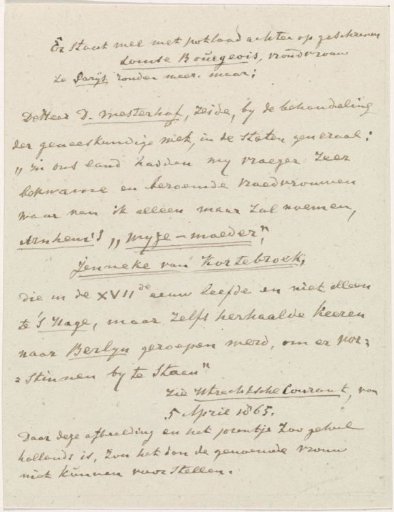 Er staat wel met potlood achter op geschreven
Louise Bourgeois, vroedvrouw
te Parijs zonder meer. maar;
De Heer D. Westerhof, zeide, by de behandeling
der geneeskundige wet, in de Staten generaal:
"in ons land hadden wy vroeger zeer
bekwame en beroemde vroedvrouwen
waar van ik alleen maar zal noemen,
Arnhem's "Wyze-moeder",
Jenneke van Kortebroek,
die in de XVIIde eeuw leefde en niet alleen
te 's Hage, maar zelfs herhaalde keeren
naar Berlyn geroepen werd, om er vor-
stinnen by te staan"
Zie Utrechtsche Courant, van
5 April 1865.
Daar deze afbeelding en het prentje zoo geheel
hollands is, zou het dan de genoemde vrouw
niet kunnen voorstellen.